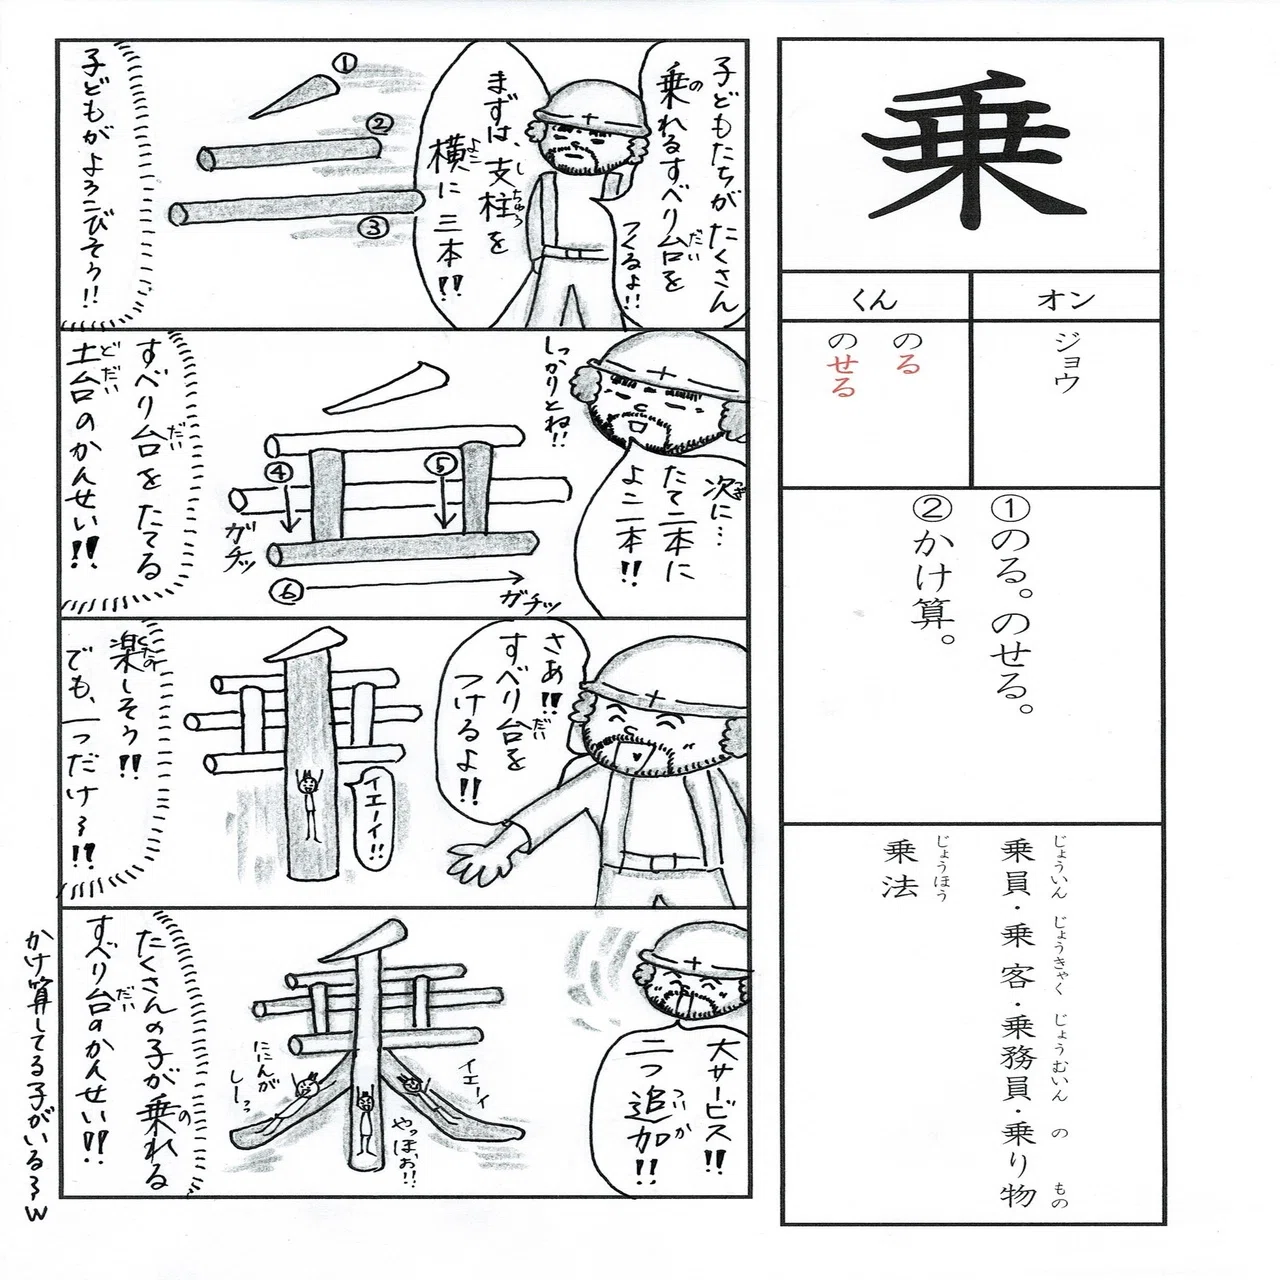 乗
オン
くん
ジョウ
のる
のせる
①のる。のせる。
②かけ算。
乗員・乗客・乗務員・乗り物
じょういん じょうきゃく じょうむいん の もの
乗法
じょうほう
子どもたちがたくさん
乗れるすべり台を
の
だい
つくるよ!!
まずは、支柱を
しちゅう
横に三本!!
よこ
①
②
③
子どもがよろこびそう!!
次に…
つぎ
たて二本に
よこ一本!!
しっかりとね!!
④
⑤
⑥
ガチッ
ガチッ
すべり台をたてる
だい
土台のかんせい!!
どだい
さあ!!
すべり台を
だい
つけるよ!!
イエーイ!!
楽しそう!!
たの
でも、一つだけ〜!?
大サービス!!
二つ追加!!
ついか
イエーイ
やっほぉ!!
ににんが
しーっ
たくさんの子が乗れる
の
すべり台のかんせい!!
だい
かけ算してる子がいる〜w